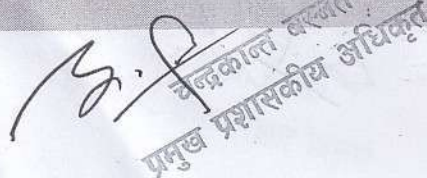 चन्द्रकान्त
प्रमुख प्रशासकीय अधिकृत